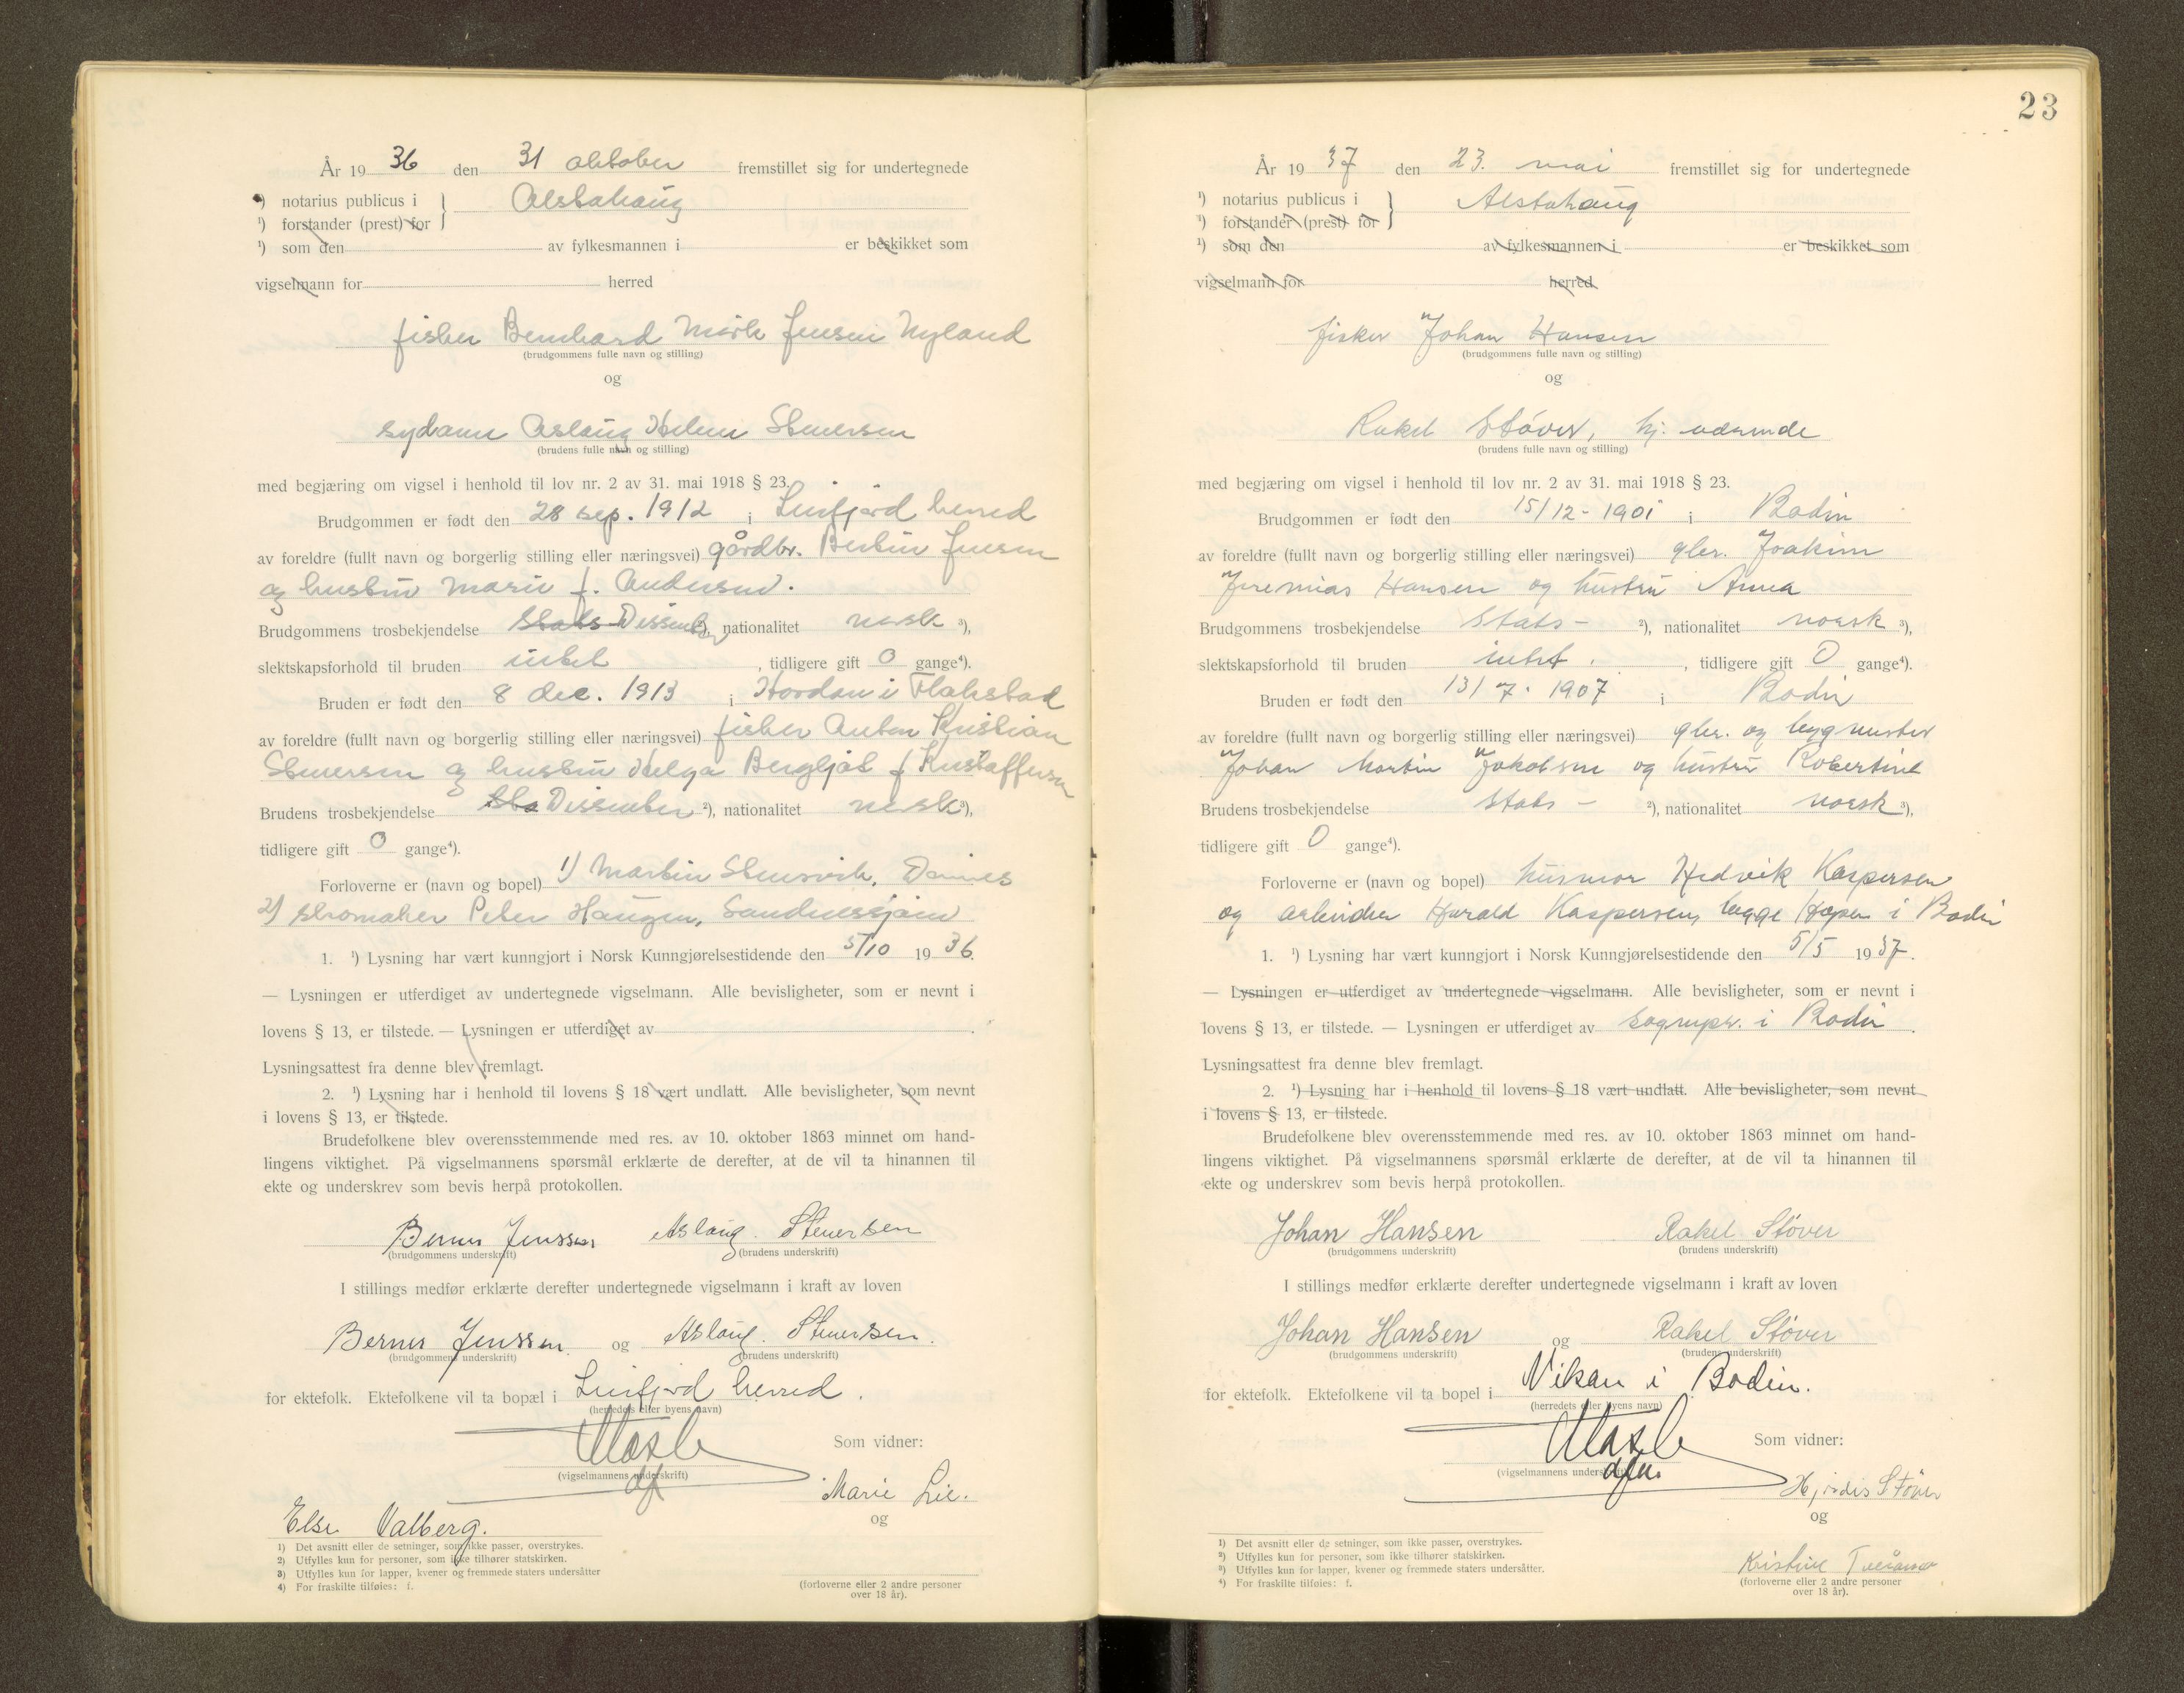 År 19 36 den 31 oktober fremstillet sig for undertegnede
¹) notarius publicus i } Alstahaug
¹) forstander (prest) for
¹) som den av fylkesmannen i er beskikket som
vigselmann for herred
fisker Bernhard Mørk Jensen Nyland
(brudgommens fulle navn og stilling)
og
sydame Aslaug Helene Stenersen
(brudens fulle navn og stilling)
med begjæring om vigsel i henhold til lov nr. 2 av 31. mai 1918 § 23.
Brudgommen er født den 28 sep. 1912 i Leirfjord herred
av foreldre (fullt navn og borgerlig stilling eller næringsvei) gårdbr. Jensen
og hustru Marie f. Andersen.
Brudgommens trosbekjendelse Stats Dissenter ²), nationalitet norsk ³),
slektskapsforhold til bruden intet , tidligere gift 0 gange⁴).
Bruden er født den 8 dec. 1913 i i Flakstad
av foreldre (fullt navn og borgerlig stilling eller næringsvei) fisker Anton Kristian
Stenersen og hustru Helga Bergljot f Kristoffersen
Brudens trosbekjendelse Sta Dissenter ²), nationalitet norsk ³),
tidligere gift 0 gange⁴).
Forloverne er (navn og bopel) 1) Martin Stensvik,
2) skomaker Peter Haugen, Sandnessjøen
1. ¹) Lysning har vært kunngjort i Norsk Kunngjørelsestidende den 5/10 19 36.
— Lysningen er utferdiget av undertegnede vigselmann. Alle bevisligheter, som er nevnt i
lovens § 13, er tilstede. — Lysningen er utferdiget av .
Lysningsattest fra denne blev fremlagt.
2. ¹) Lysning har i henhold til lovens § 18 vært undlatt. Alle bevisligheter, som nevnt
i lovens § 13, er tilstede.
Brudefolkene blev overensstemmende med res. av 10. oktober 1863 minnet om hand-
lingens viktighet. På vigselmannens spørsmål erklærte de derefter, at de vil ta hinannen til
ekte og underskrev som bevis herpå protokollen.
Berner Jenssen Aslaug. Stenersen
(brudgommens underskrift) (brudens underskrift)
I stillings medfør erklærte derefter undertegnede vigselmann i kraft av loven
Berner Jenssen og Aslaug. Stenersen.
(brudgommens underskrift) (brudens underskrift)
for ektefolk. Ektefolkene vil ta bopæl i Leirfjord herred.
(herredets eller byens navn)
Som vidner:
(vigselmannens underskrift)
Marie Lie.
og
Else Valberg.
1) Det avsnitt eller de setninger, som ikke passer, overstrykes.
2) Utfylles kun for personer, som ikke tilhører statskirken.
3) Utfylles kun for lapper, kvener og fremmede staters undersåtter
4) For fraskilte tilføies: f.
(forloverne eller 2 andre personer
over 18 år).
23
År 19 37 den 23. mai fremstillet sig for undertegnede
¹) notarius publicus i } Alstahaug
¹) forstander (prest) for
¹) som den av fylkesmannen i er beskikket som
vigselmann for herred
fisker Johan Hansen
(brudgommens fulle navn og stilling)
og
Rakel Støver, hj. værende
(brudens fulle navn og stilling)
med begjæring om vigsel i henhold til lov nr. 2 av 31. mai 1918 § 23.
Brudgommen er født den 15/12 - 1901 i Bodin
av foreldre (fullt navn og borgerlig stilling eller næringsvei) gbr. Joakim
Jeremias Hansen og hustru Anna
Brudgommens trosbekjendelse Stats - ²), nationalitet norsk ³),
slektskapsforhold til bruden intet. , tidligere gift 0 gange⁴).
Bruden er født den 13/7 - 1907 i Bodin
av foreldre (fullt navn og borgerlig stilling eller næringsvei) gbr. og bygmester
Johan Martin Jakobsen og hustru Robertine
Brudens trosbekjendelse Stats - ²), nationalitet norsk ³),
tidligere gift 0 gange⁴).
Forloverne er (navn og bopel) husmor Hedvik Kaspersen
og arbeider Harald Kaspersen, begge Hopen i Bodin
1. ¹) Lysning har vært kunngjort i Norsk Kunngjørelsestidende den 5/5 19 37.
— Lysningen er utferdiget av undertegnede vigselmann. Alle bevisligheter, som er nevnt i
lovens § 13, er tilstede. — Lysningen er utferdiget av sognepr. i Bodin.
Lysningsattest fra denne blev fremlagt.
2. ¹) Lysning har i henhold til lovens § 18 vært undlatt. Alle bevisligheter, som nevnt
i lovens § 13, er tilstede.
Brudefolkene blev overensstemmende med res. av 10. oktober 1863 minnet om hand-
lingens viktighet. På vigselmannens spørsmål erklærte de derefter, at de vil ta hinannen til
ekte og underskrev som bevis herpå protokollen.
Johan Hansen Rakel Støver
(brudgommens underskrift) (brudens underskrift)
I stillings medfør erklærte derefter undertegnede vigselmann i kraft av loven
Johan Hansen og Rakel Støver
(brudgommens underskrift) (brudens underskrift)
for ektefolk. Ektefolkene vil ta bopel i Vikan i Bodin.
(herredets eller byens navn)
Som vidner:
(vigselmannens underskrift)
Hjørdis Støver
og
Kristine
1) Det avsnitt eller de setninger, som ikke passer, overstrykes.
²) Utfylles kun for personer, som ikke tilhører statskirken.
³) Utfylles kun for lapper, kvener og fremmede staters undersåtter.
⁴) For fraskilte tilføies: f.
(forloverne eller 2 andre personer
over 18 år).